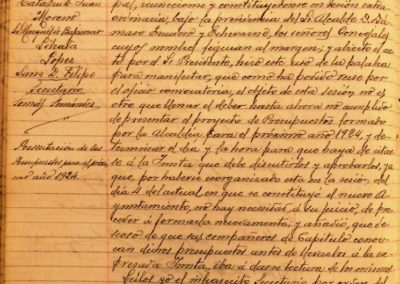 Catalán D. Juan
Moreno
El Marqués de
Librada
López
Sanz D. Felipe
Secretario
Tomás
Presentación de los
Presupuestos para el próxi-
mo año 1924.
pal, reuniéronse y constituyéronse en sesión extra-
ordinaria, bajo la presidencia del Sr. Alcalde D.
maro y Echevarría, los señores Concejales
cuyos nombres figuran al margen; y abierto el ac-
to por el Sr. Presidente, hizo este uso de la palabra
para manifestar, que como ha podido verse por
el oficio convocatoria, el objeto de esta sesión no es
otro que llenar el deber hasta ahora no cumplido
de presentar el proyecto de Presupuestos formado
por la Alcaldía para el próximo año 1924, y de-
terminar el día y la hora para que haya de citar-
se á la Junta que debe discutirlos y aprobarlos, ya
que, por haberse reorganizado esta en la sesión del
día 4 del actual en que se constituyó el nuevo A-
yuntamiento, no hay necesidad, á su juicio, de pro-
ceder á formarla nuevamente; y añadió, que de-
seoso de que sus compañeros de Capítulo conoz-
can dichos presupuestos antes de llevarlos á la ex-
presada Junta, iba á darse lectura de los mismos.
Leílos yo el infrascrito Secretario por orden del